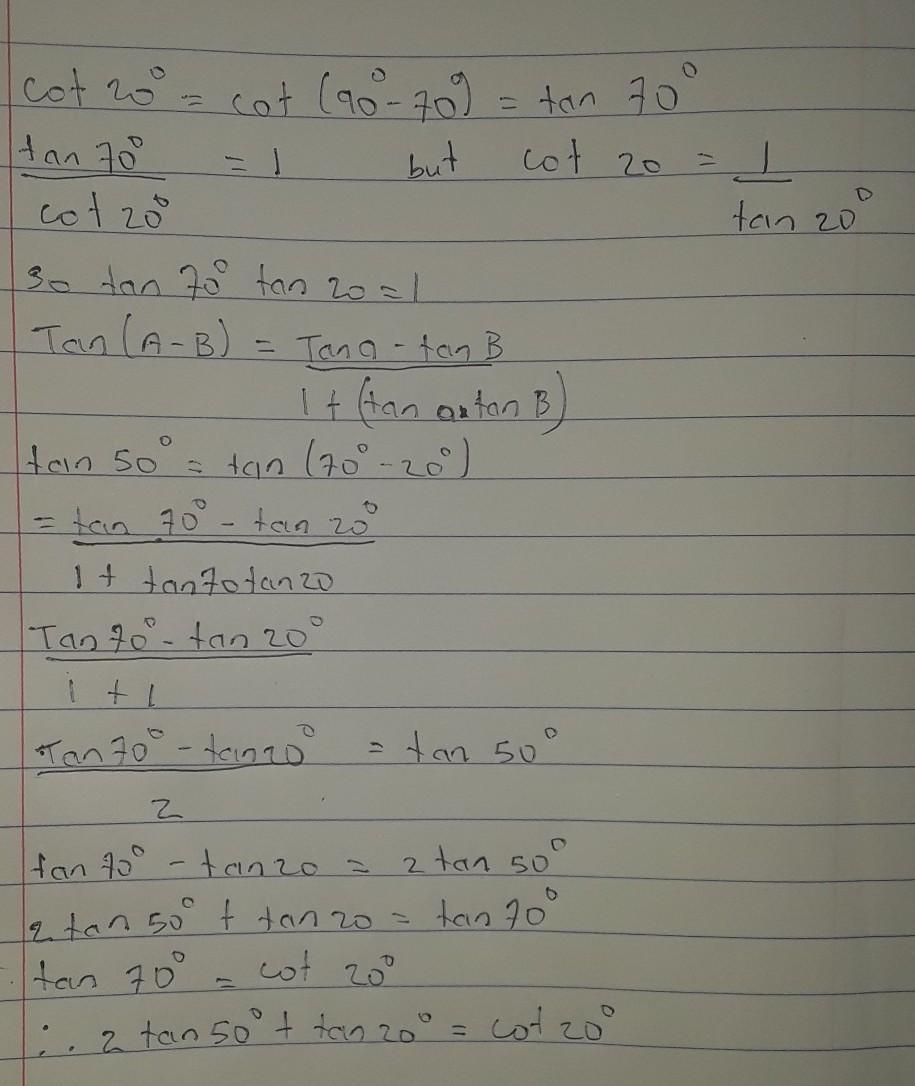 cot 20° = cot (90° - 70°) = tan 70°
tan 70° / cot 20° = 1 but cot 20 = 1 / tan 20°
so tan 70° tan 20 = 1
Tan (A - B) = Tan a - tan B / 1 + (tan a tan B)
tan 50° = tan (70° - 20°)
= tan 70° - tan 20° / 1 + tan 70 tan 20
Tan 70° - tan 20° / 1 + 1
Tan 70° - tan 20° / 2 = tan 50°
tan 70° - tan 20 = 2 tan 50°
2 tan 50° + tan 20 = tan 70°
tan 70° = cot 20°
∴ 2 tan 50° + tan 20° = cot 20°